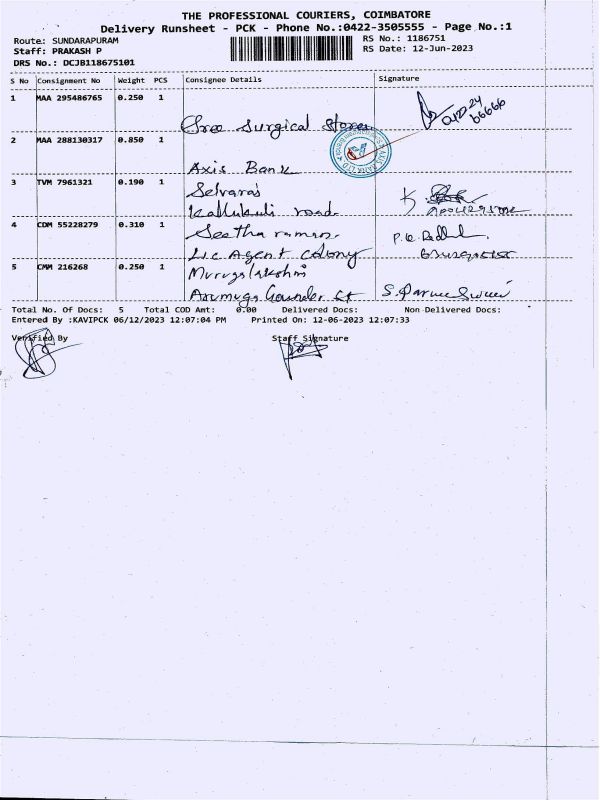 THE PROFESSIONAL COURIERS, COIMBATORE
Delivery Runsheet - PCK - Phone No.:0422-3505555 - Page No.:1
Route: SUNDARAPURAM
RS No.: 1186751
Staff: PRAKASH P
RS Date: 12-Jun-2023
DRS No.: DCJB118675101
S No Consignment No Weight PCS Consignee Details Signature
1 MAA 295486765 0.250 1
Sree Surgical Stores
2 MAA 288130317 0.850 1
Axis Bank
3 TVM 7961321 0.190 1 Selvaraj
road
4 CDM 55228279 0.310 1 Seetha raman
Lic Agent Colony
5 CMM 216268 0.250 1 Murugalakshmi
Arumuga Gounder St
Total No. Of Docs: 5 Total COD Amt: 0.00 Delivered Docs: Non-Delivered Docs:
Entered By :KAVIPCK 06/12/2023 12:07:04 PM Printed On: 12-06-2023 12:07:33
Verified By Staff Signature